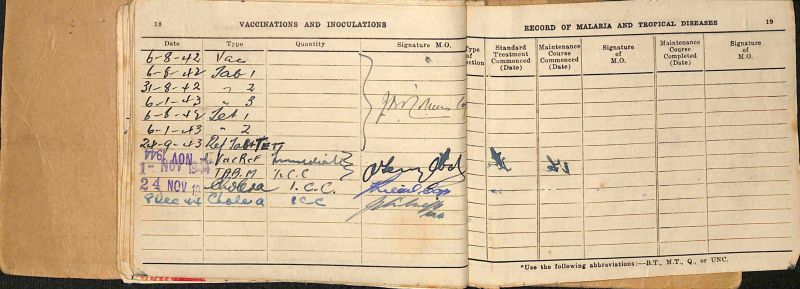 18 VACCINATIONS AND INOCULATIONS
Date Type Quantity Signature M.O.
6-8-42 Vac
6-8-42 Tab 1
31-8-42 " 2
6-1-43 " 3
6-8-42 Tet 1
6-1-43 " 2
24-9-43 Ref Tab + TET
Vac Ref Immediate
1- NOV T.A.B.M ½ C.C
24 NOV Cholera 1. C.C.
8 Dec 44 Cholera 1 CC
RECORD OF MALARIA AND TROPICAL DISEASES 19
Type of
Standard Treatment Commenced (Date)
Maintenance Course Commenced (Date)
Signature of M.O.
Maintenance Course Completed (Date)
Signature of M.O.
*Use the following abbreviations:—B.T., M.T., Q., or UNC.